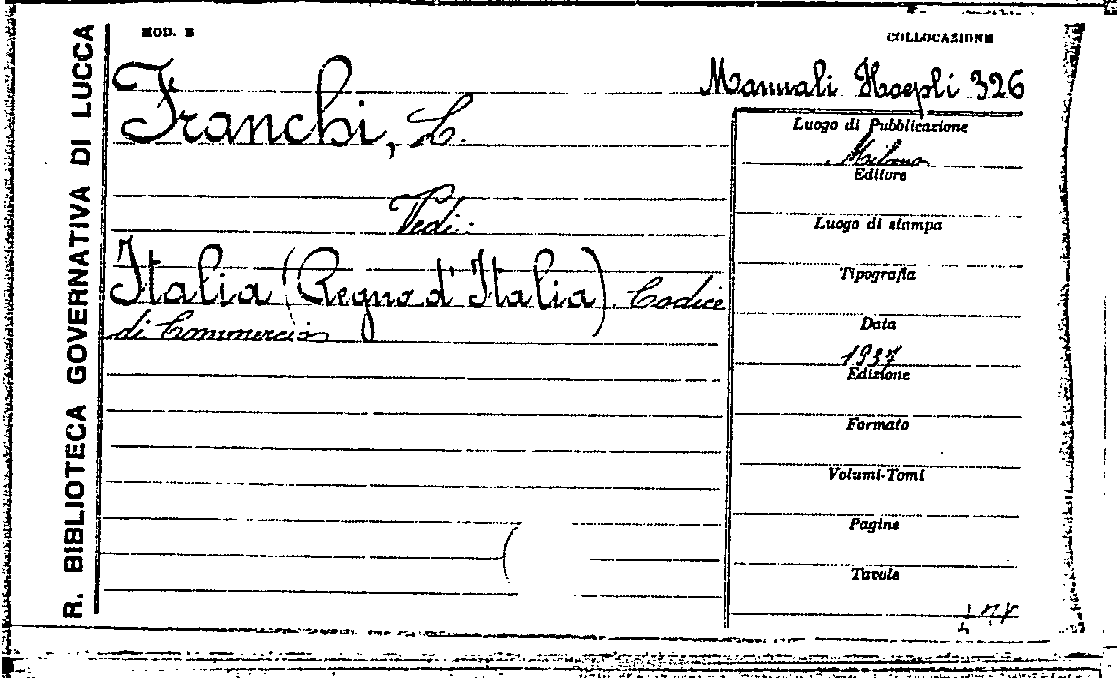 R. BIBLIOTECA GOVERNATIVA DI LUCCA
MOD. B
COLLOCAZIONE
Manuali Hoepli 326
Franchi, L.
Vedi:
Italia (Regno d'Italia). Codice
di Commercio
Luogo di Pubblicazione
Milano
Editore
Luogo di stampa
Tipografia
Data
1937
Edizione
Formato
Volumi-Tomi
Pagine
Tavole